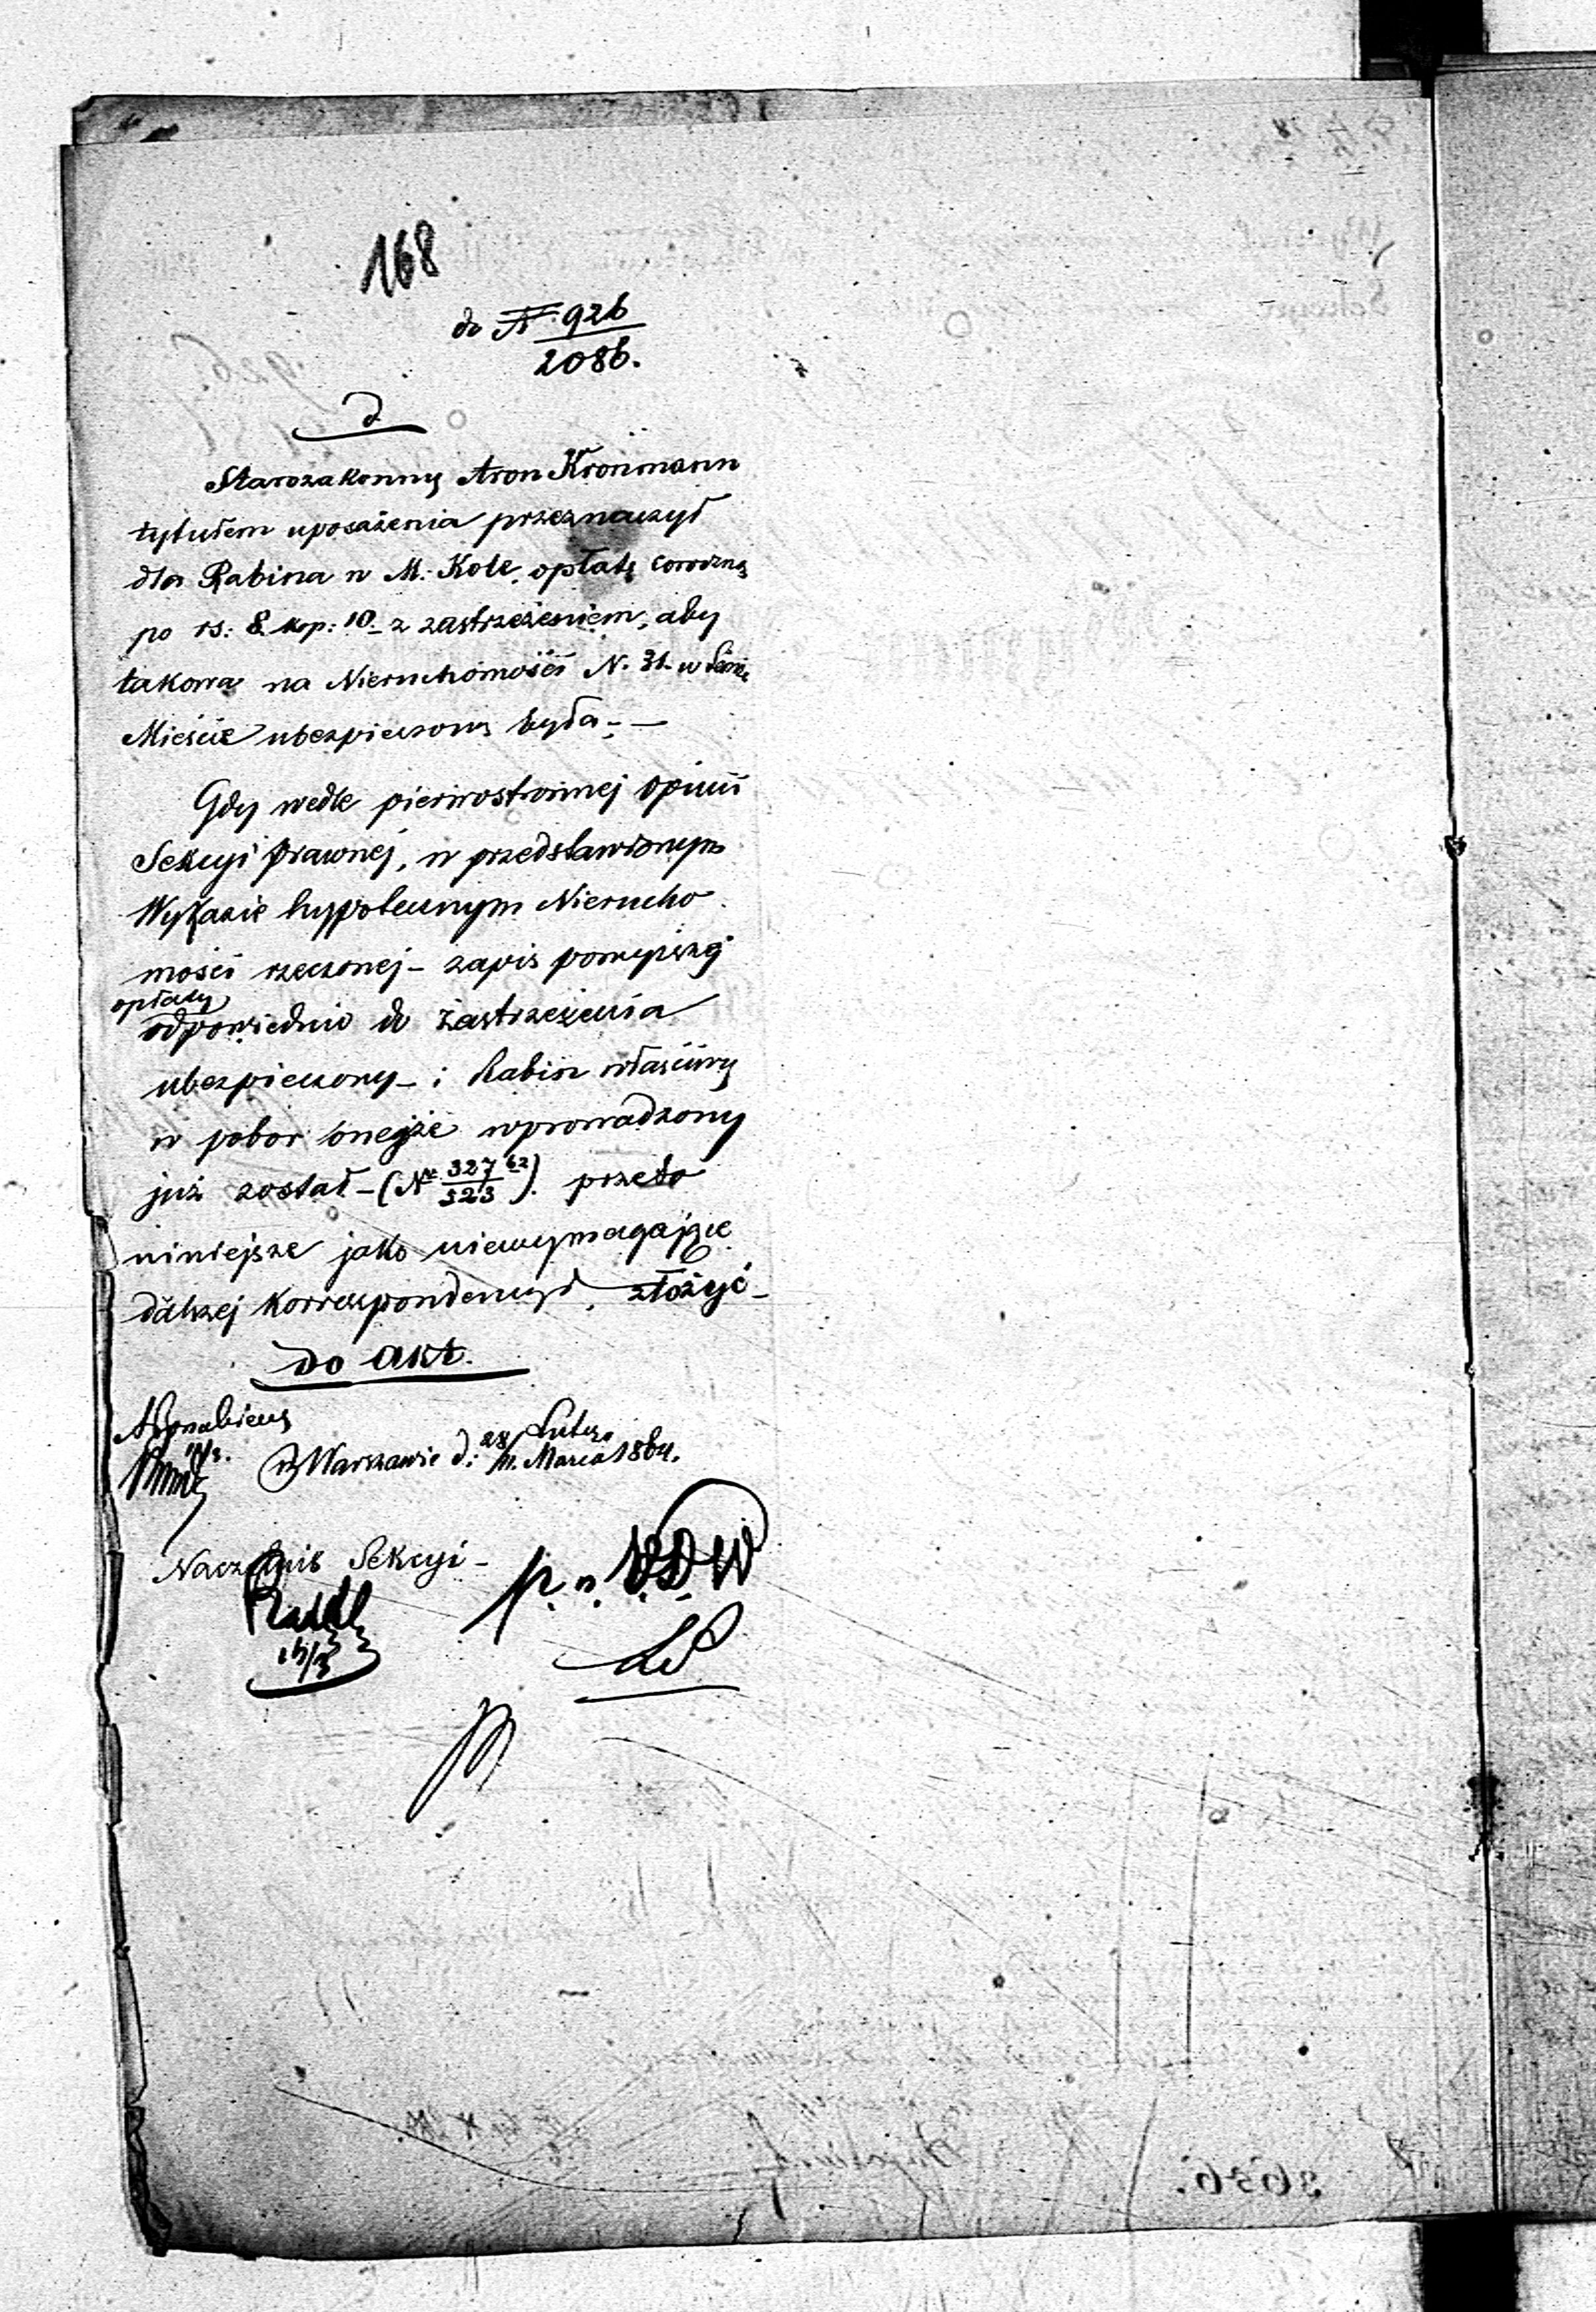 168
do N. 926
2086.
d.
Starozakonny Aron Kronmann
tytułem uposażenia przeznaczył
dla Rabina w M. Kole, opłatę coroczną
po rs: 8 kop: 10 - z zastrzeżeniem, aby
takowa na Nieruchomości N. 31 w
Mieście ubezpieczoną była - —
Gdy wedle pierwostronnej opinii
Sekcyi Prawnej, w przedstawionym
Wykazie hypotecznym Nierucho
mości rzeczonej - zapis powyższej
opłaty
odpowiednio do Zastrzeżenia
ubezpieczony - i Rabin właściwy
w pobor onejże wprowadzony
już został - (Nr 327/523 62). przeto
niniejsze jako niewymagające
dalszej korrespondencyi, złożyć -
do akt.
w Warszawie d: 28 Lutego
11. Marca 1864.
Naczelnik Sekcyi -
p. o. V.D.W
3636.